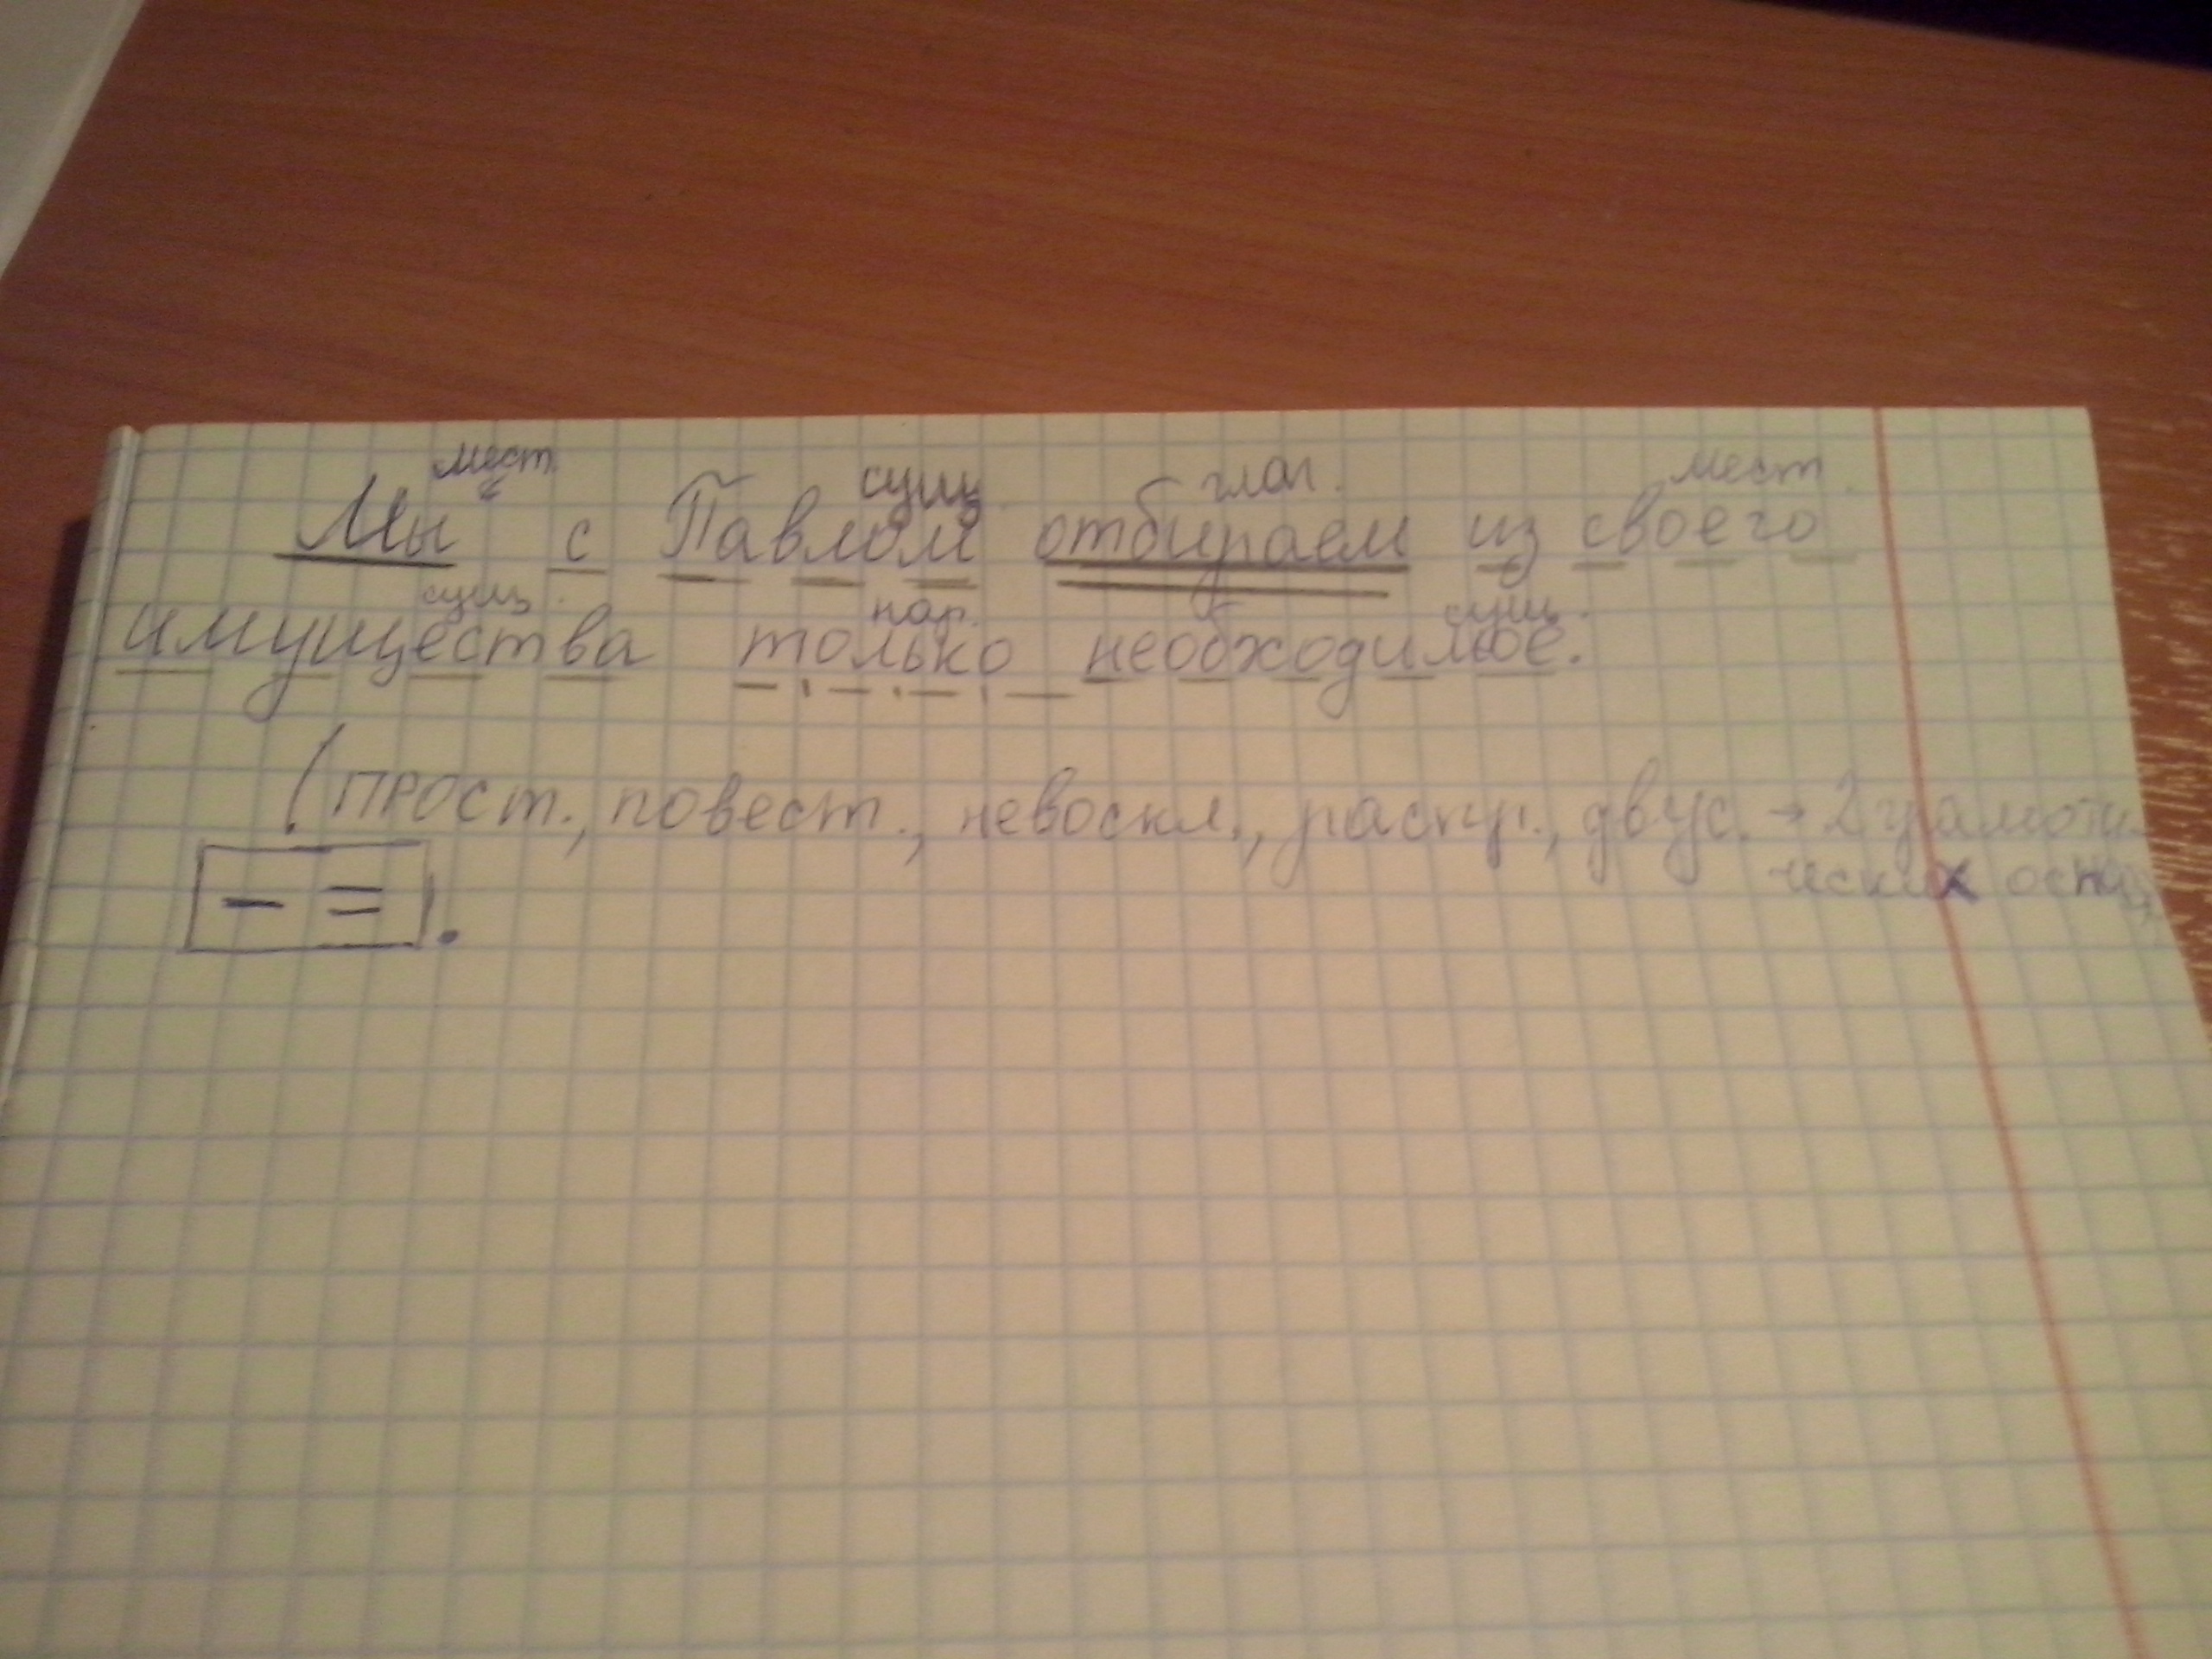 мест. сущ. глаг. мест.
Мы с Павлом отбираем из своего
сущ. нар. сущ.
имущества только необходимое.
(прост., повест., невоскл., распр., двус. → 2 грамати-
ческих основ,
[- =].